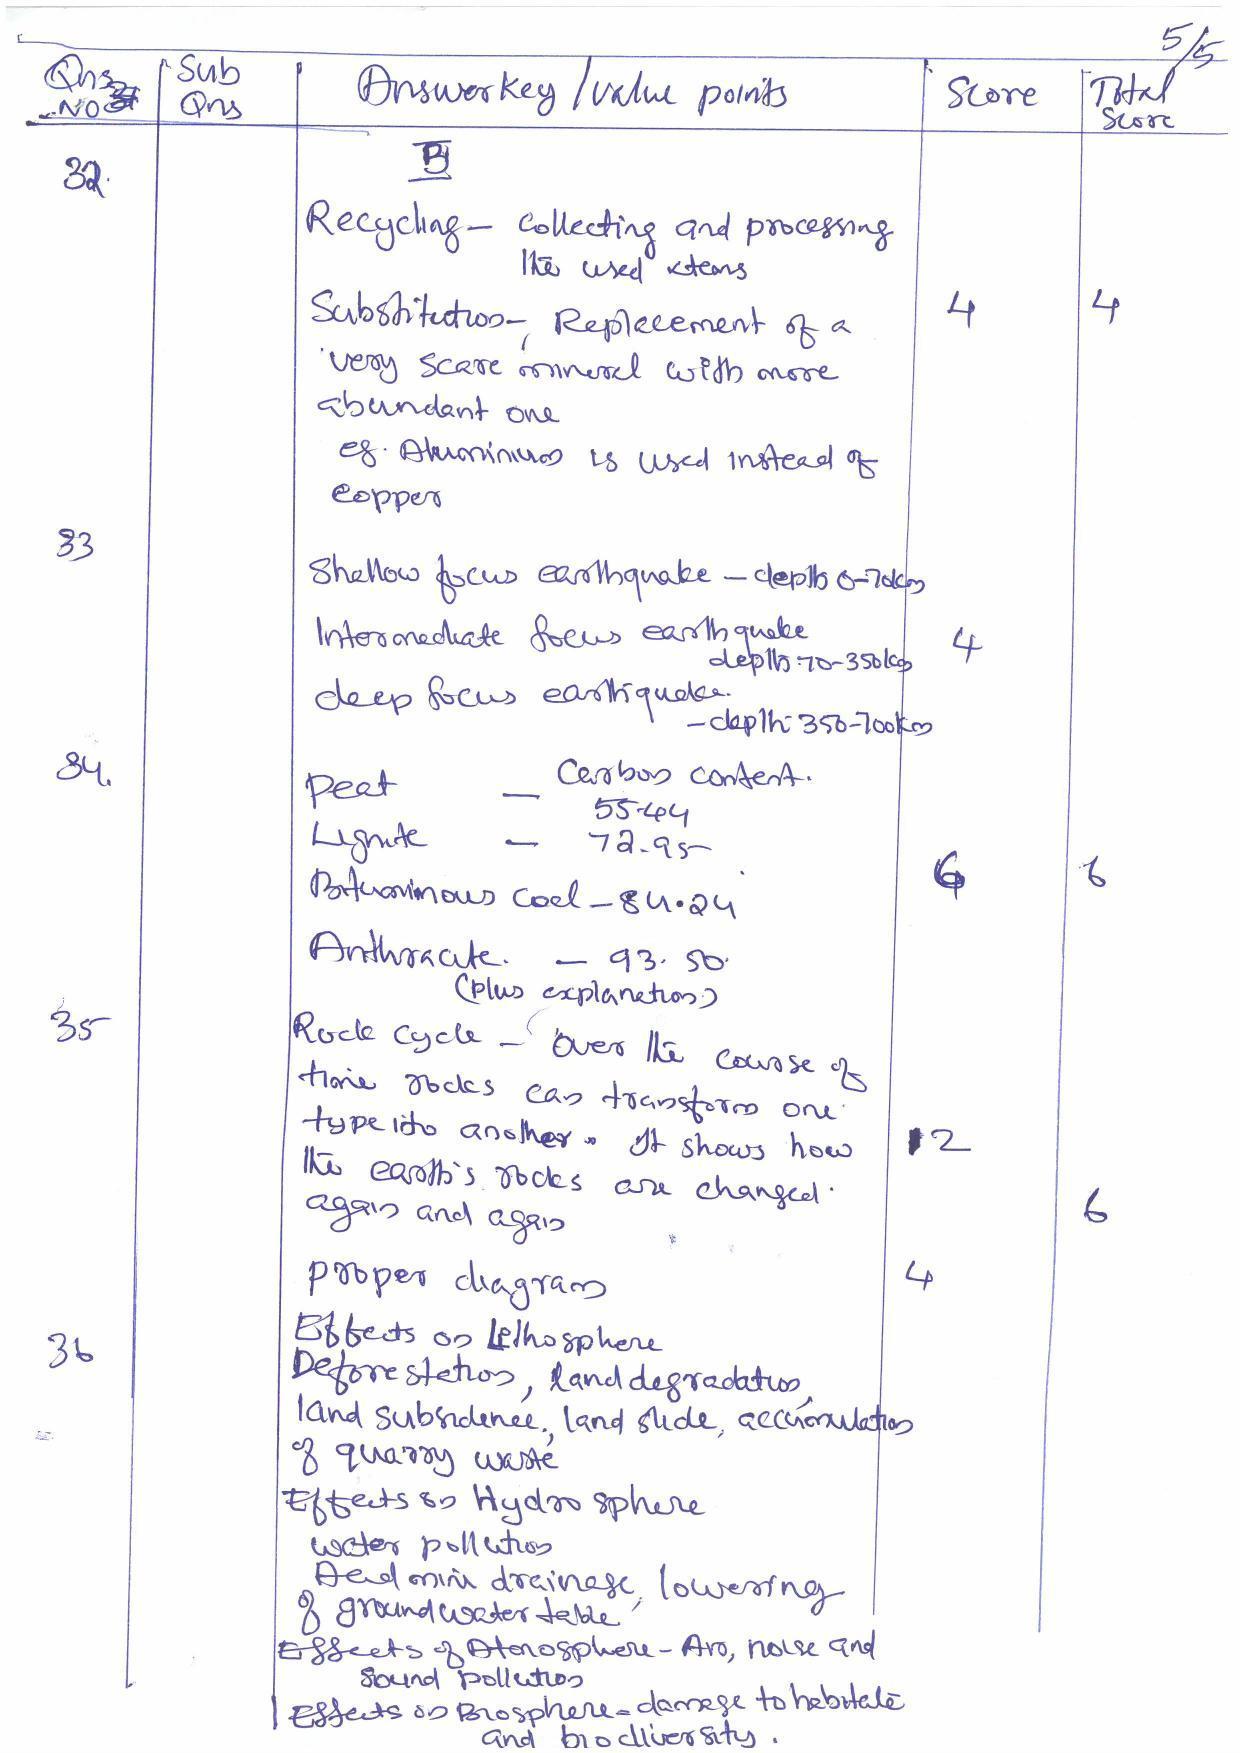 5/5
Qns No
Sub Qns
Answerkey / value points
Score
Total Score
32.
B
Recycling – collecting and processing
the used items
Substitution – Replacement of a
very scare mineral with more
abundant one
eg. Aluminium is used instead of
copper
4
4
33
Shallow focus earthquake – depth 0-70km
Intermediate focus earthquake
depth: 70-350km
deep focus earthquake.
– depth: 350-700km
4
34.
Carbon content.
Peat –
55.44
Lignite – 72.95
Bituminous coal – 84.24
Anthracite. – 93.50
(plus explanation)
6
6
35
Rock cycle – Over the course of
time rocks can transform one
type into another. It shows how
the earth's rocks are changed
again and again
2
6
proper diagram
4
36
Effects on Lithosphere
Deforestation, land degradation,
land subsidence, land slide, accumulation
of quarry waste
Effects on Hydrosphere
water pollution
Acid mine drainage, lowering
of ground water table
Effects of Atmosphere – Air, noise and
sound pollution
Effects on Biosphere – damage to habitate
and biodiversity.